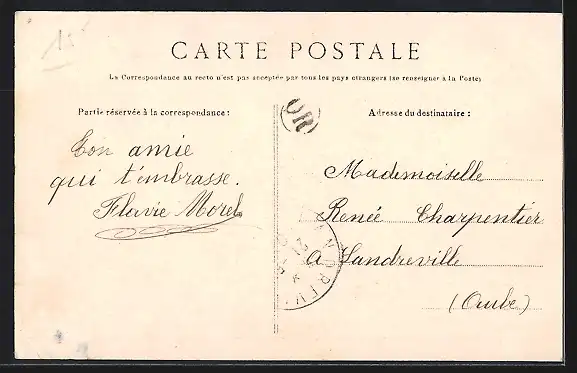 15
CARTE POSTALE
La Correspondance au recto n'est pas acceptée par tous les pays étrangers (se renseigner à la Poste)
Partie réservée à la correspondance :
Ton amie
qui t'embrasse.
Flavie Morel
OR
Adresse du destinataire :
Mademoiselle
Renée Charpentier
à Landreville
(Aube)